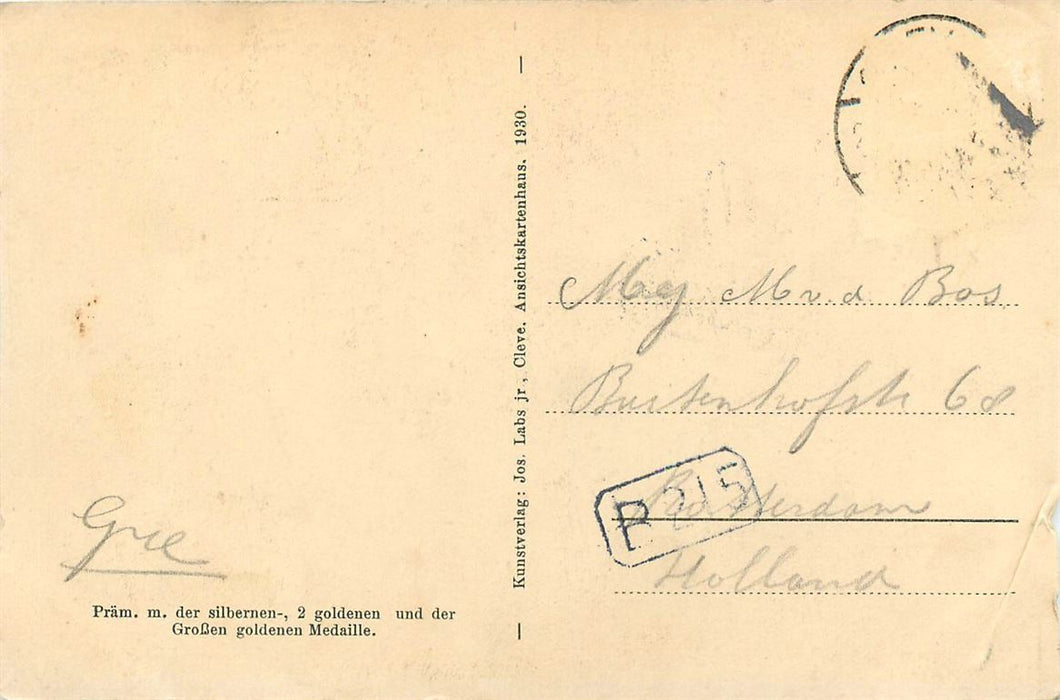 Gre
Präm. m. der silbernen-, 2 goldenen und der
Großen goldenen Medaille.
Kunstverlag: Jos. Labs jr., Cleve. Ansichtskartenhaus. 1930.
Mej M v. d Bos
Buitenhofstr 68
Rotterdam
Holland
P 215